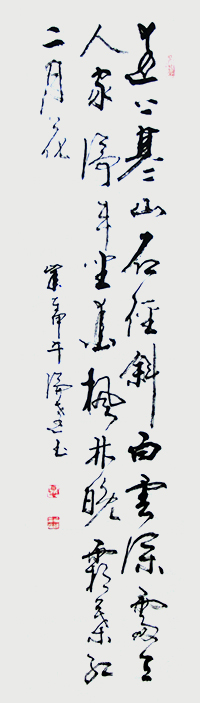 遠上寒山石徑斜白雲深處有
人家停車坐愛楓林晚霜葉紅
二月花